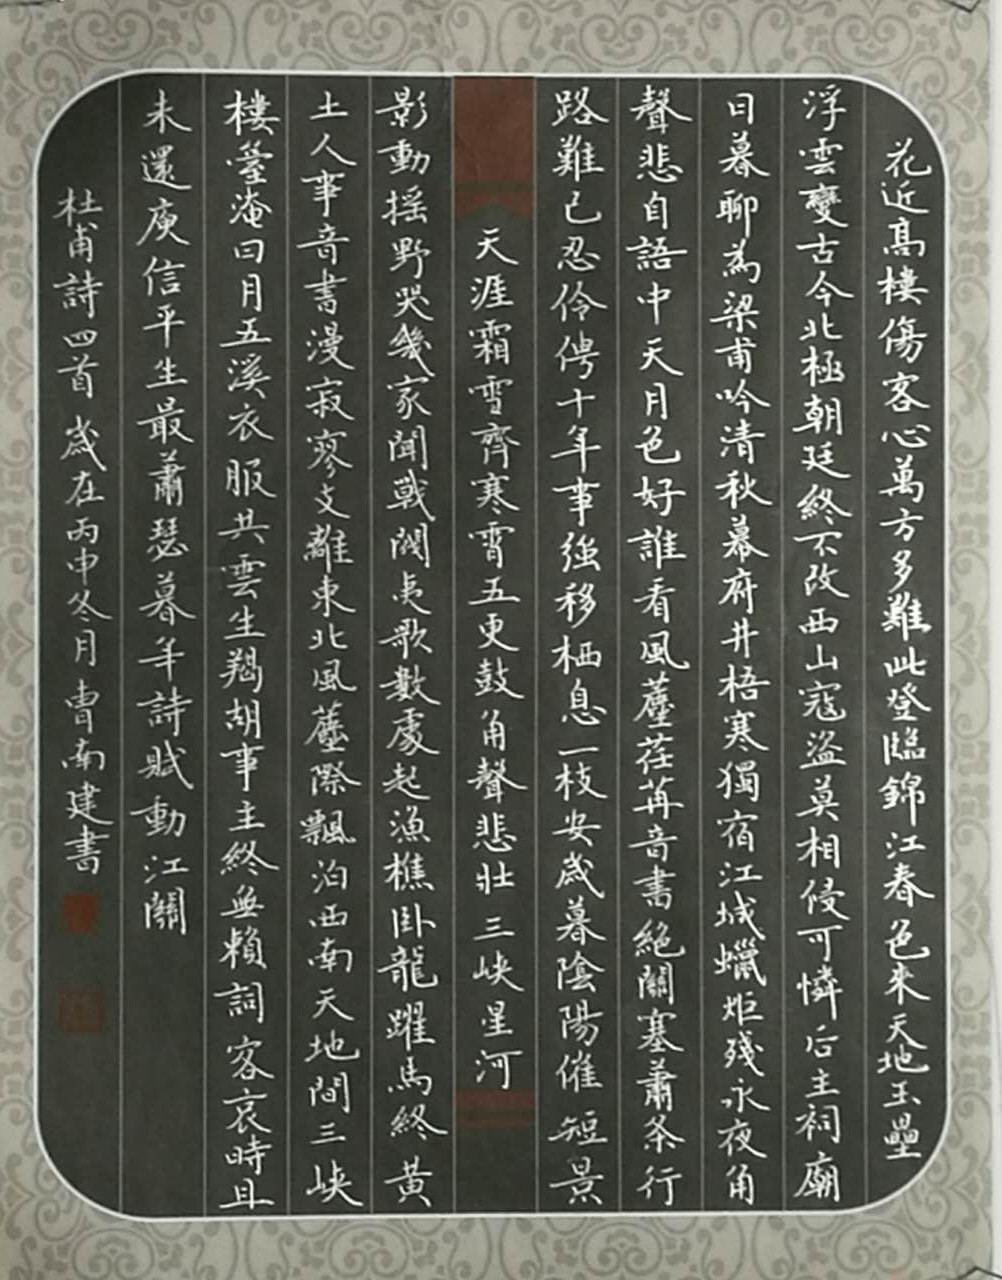 花近高樓傷客心萬方多難此登臨錦江春色來天地玉壘
浮雲變古今北極朝廷終不改西山寇盜莫相侵可憐后主祠廟
日暮聊為梁甫吟清秋幕府井梧寒獨宿江城蠟炬殘永夜角
聲悲自語中天月色好誰看風塵荏苒音書絕關塞蕭条行
路難已忍伶俜十年事強移栖息一枝安歲暮陰陽催短景
天涯霜雪齊寒霄五更鼓角聲悲壯三峽星河
影動搖野哭幾家聞戰閥夷歌數處起漁樵臥龍躍馬終黃
土人事音書漫寂寥支離東北風塵際飄泊西南天地間三峽
樓臺淹日月五溪衣服共雲生羯胡事主終無賴詞客哀時且
未還庾信平生最蕭瑟暮年詩賦動江關
杜甫詩四首歲在丙申冬月曹南建書